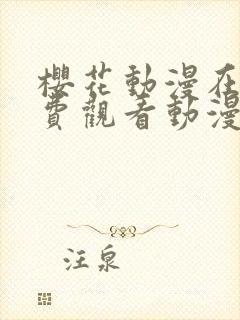 櫻花動漫在
費觀看動漫
汪泉